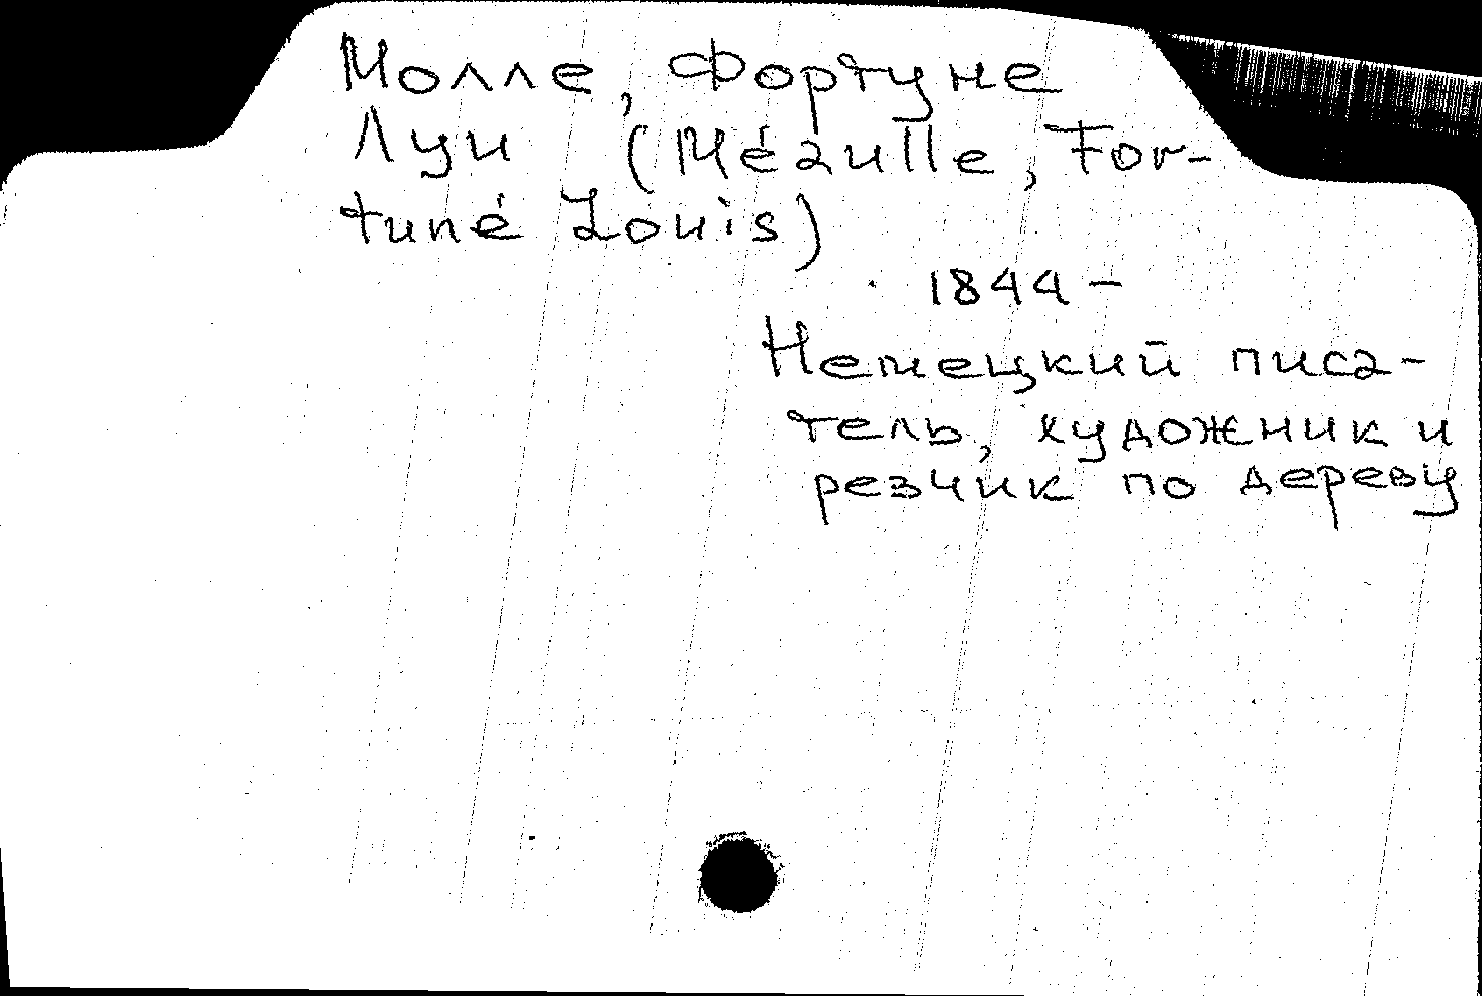 Молле, Фортуне
Луи (Méaulle, For-
tuné Louis)
1844-
Немецкий писа-
тель, художник и
резчик по дереву